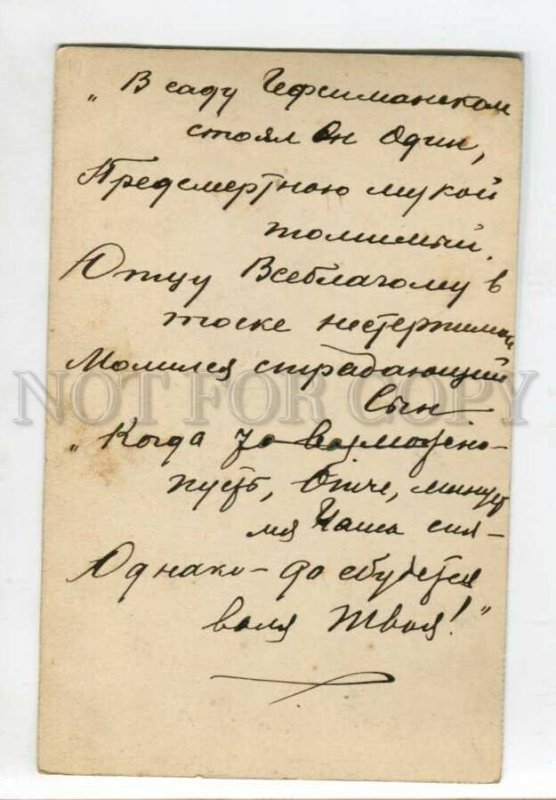 „В саду Гефсиманском
стоял Он Один,
Предсмертною мукой
томимый.
Отцу Всеблагому в
тоске нестерпимой
Молился страдающий
Сын
„Когда то возможно -
пусть, Отче, минует
мя Чаша сия -
Однако - да сбудется
воля Твоя!"
NOT FOR COPY